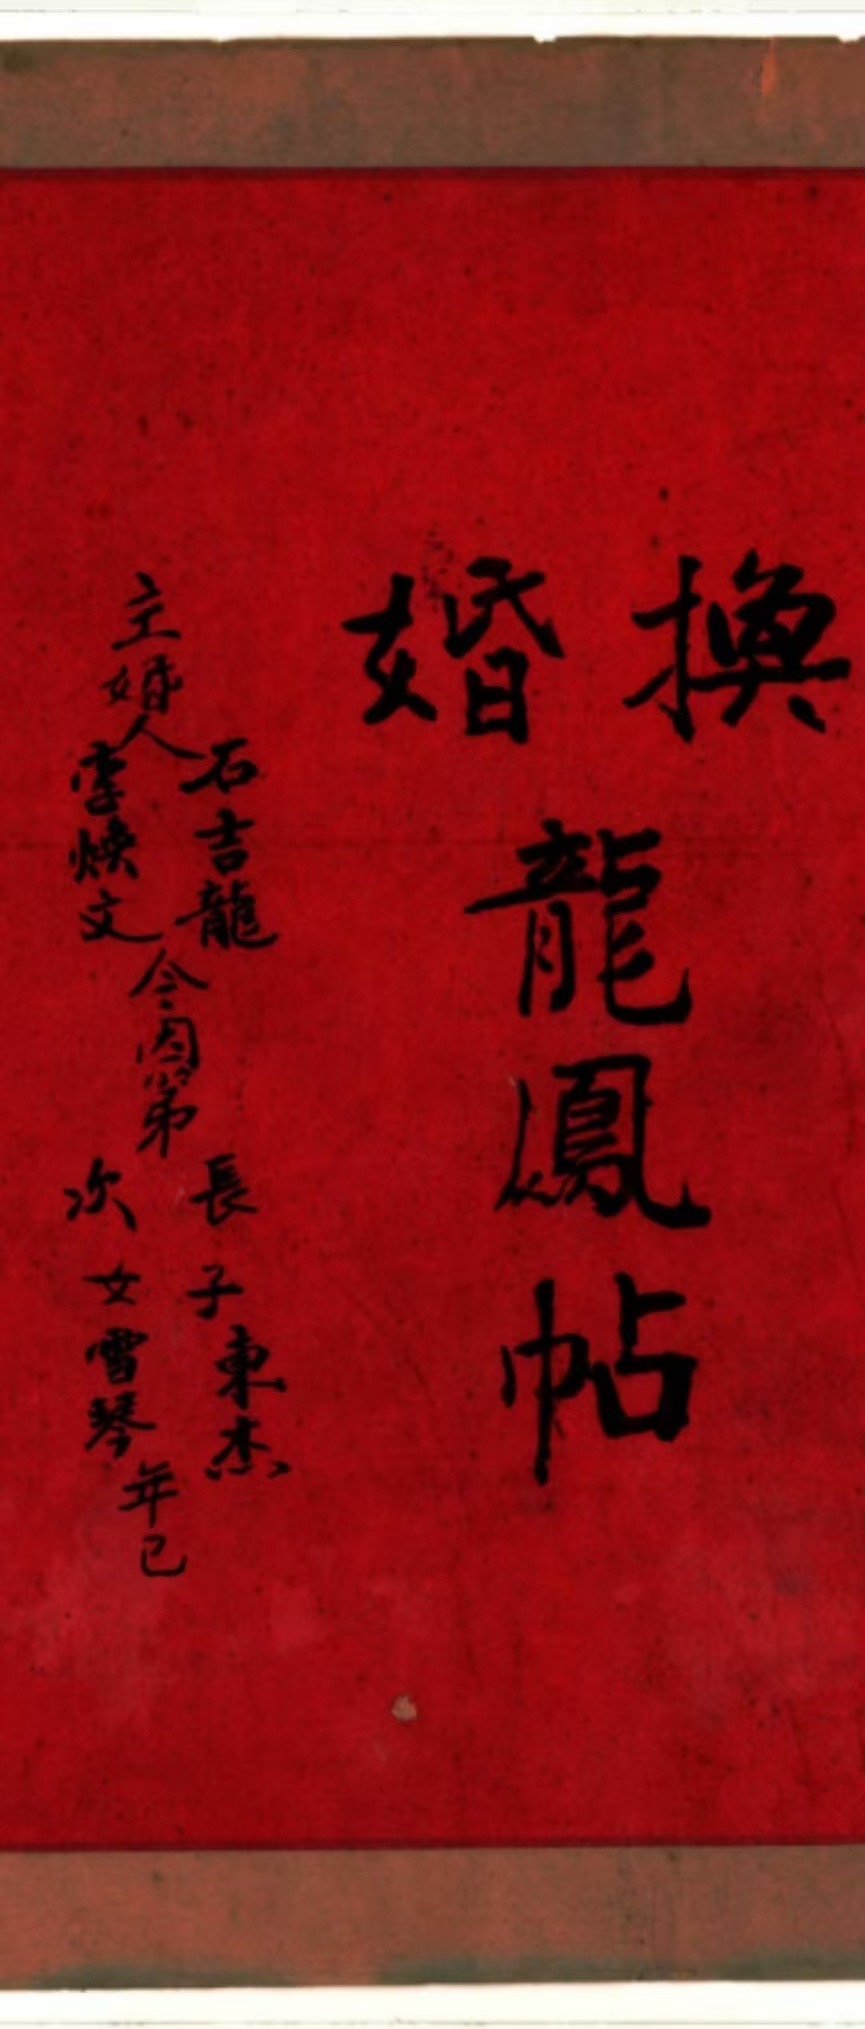 換婚
龍鳳帖
主婚人
石吉龍
李煥文
今因第
長子東杰
次女雪琴
年已